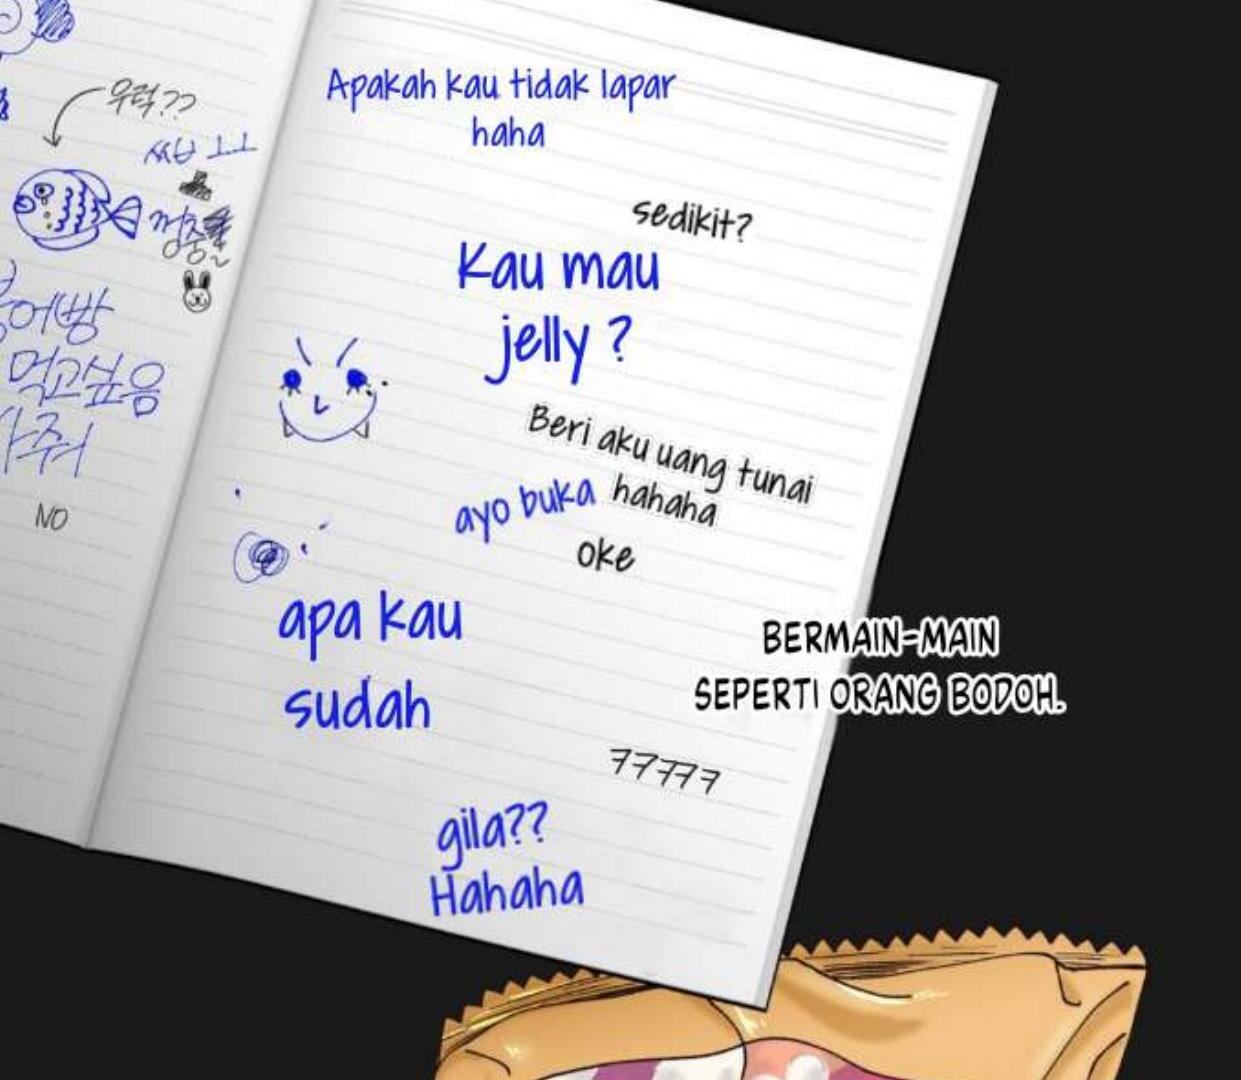 우럭??
ㅆㅂ ㅗㅗ
깡충
붕어빵
먹고싶음
사줘
NO
Apakah kau tidak lapar
haha
sedikit?
Kau mau
jelly ?
Beri aku uang tunai
hahaha
ayo buka
oke
apa kau
sudah
BERMAIN-MAIN
SEPERTI ORANG BODOH.
77777
gila??
Hahaha